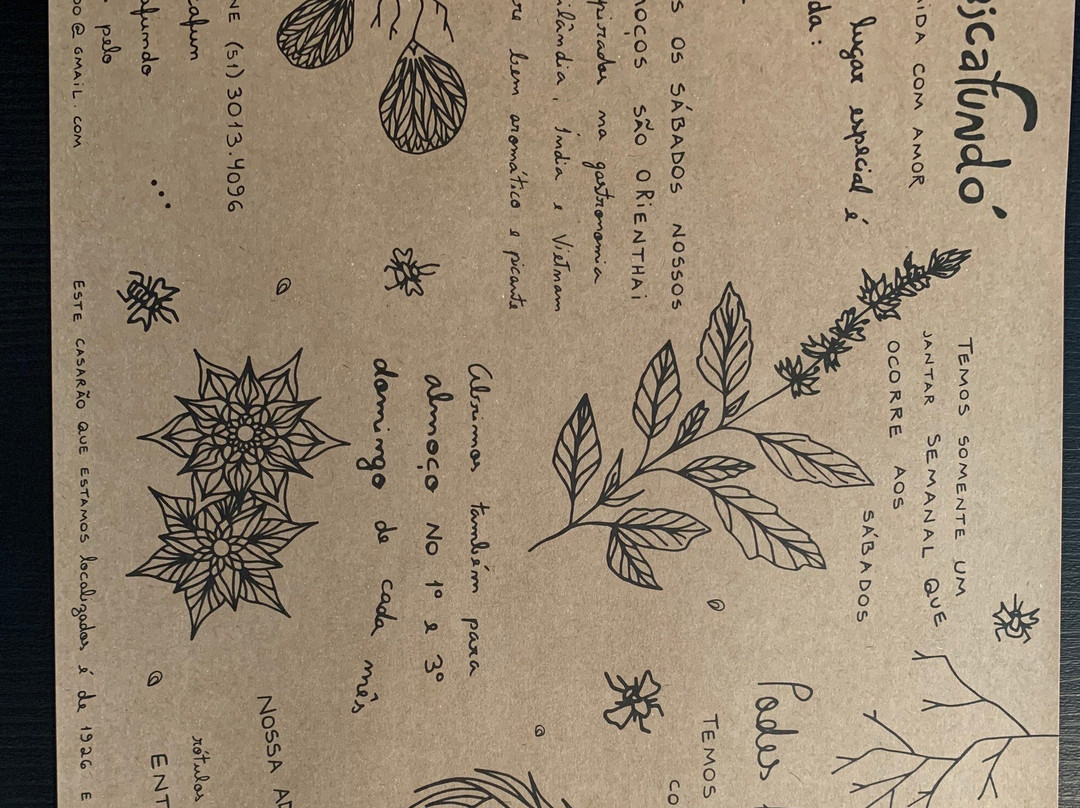 jcafundó
IDA COM AMOR
lugar especial é
da:
S OS SÁBADOS NOSSOS
MOÇOS SÃO ORIENTHAI
spirados na gastronomia
ilândia, Índia e Vietnam
re bem aromático e picante
NE (51) 3013.4096
cafun
afundo
pelo
DO@GMAIL.COM
...
TEMOS SOMENTE UM
JANTAR SEMANAL QUE
OCORRE AOS
SÁBADOS
Abrimos também para
almoço NO 1º e 3º
domingo de cada mês
ESTE CASARÃO QUE ESTAMOS localizados é de 1926 E
Podes
TEMOS
CO
NOSSA AD
rótulos
ENT